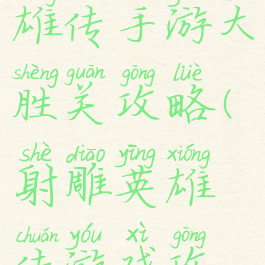 雄传手游大
shèng guān gōng lüè
胜关攻略(
shè diāo yīng xióng
射雕英雄
chuán yóu xì gōng
传游戏攻